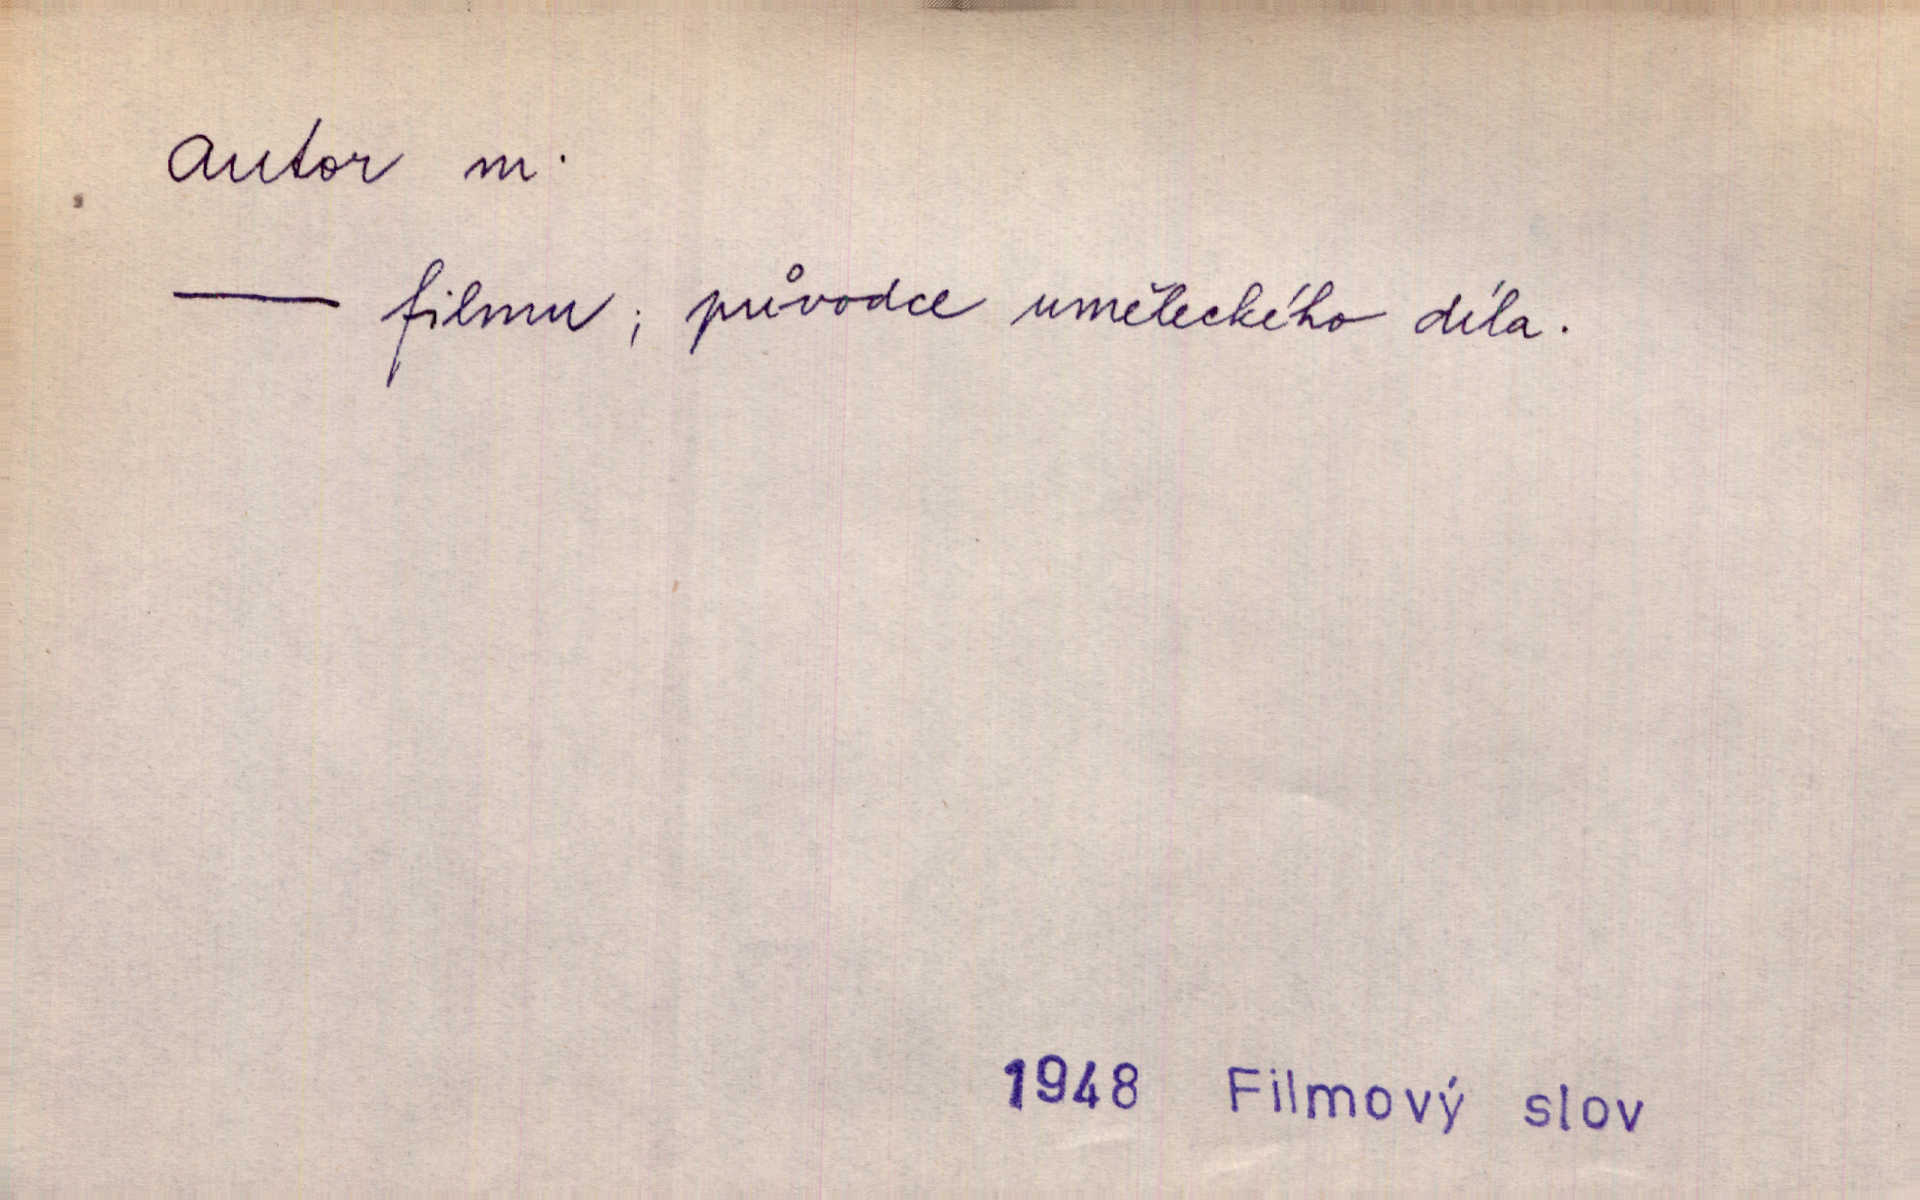 autor m.
— filmu ; původce uměleckého díla.
1948 Filmový slov